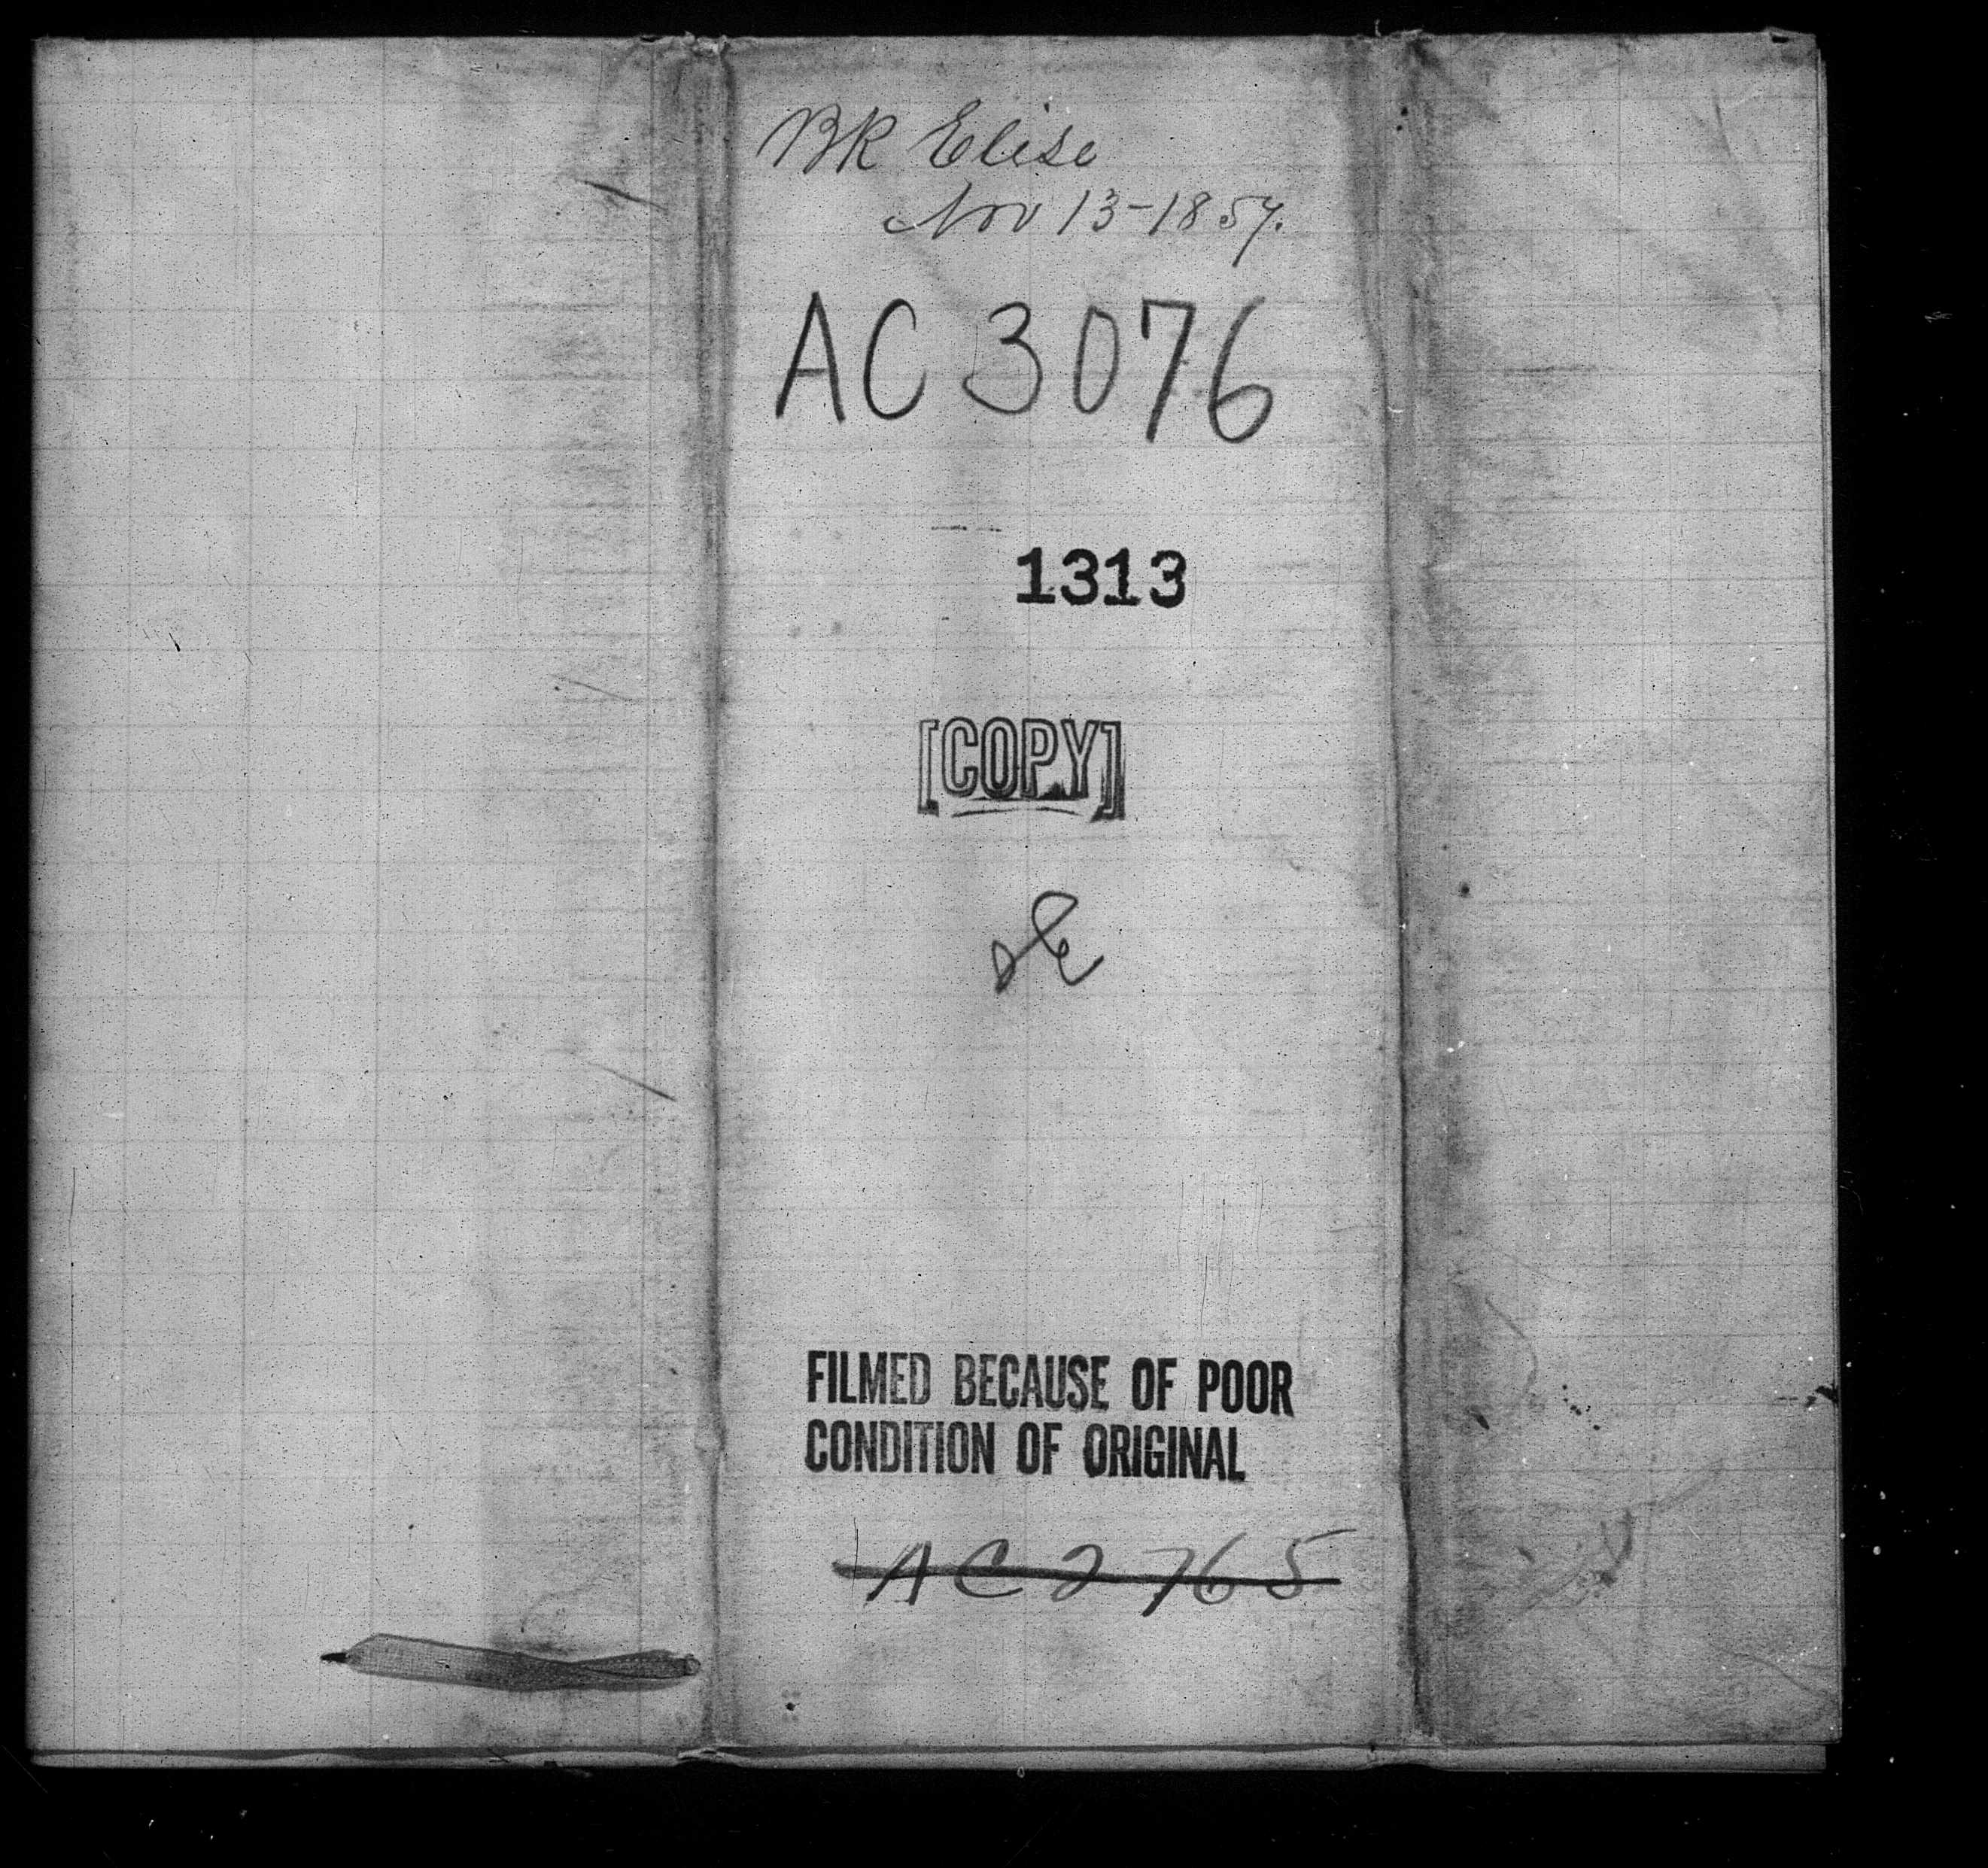 BK Elise
Nov 13-1857.
AC 3076
1313
[COPY]
FILMED BECAUSE OF POOR
CONDITION OF ORIGINAL
AC 2765